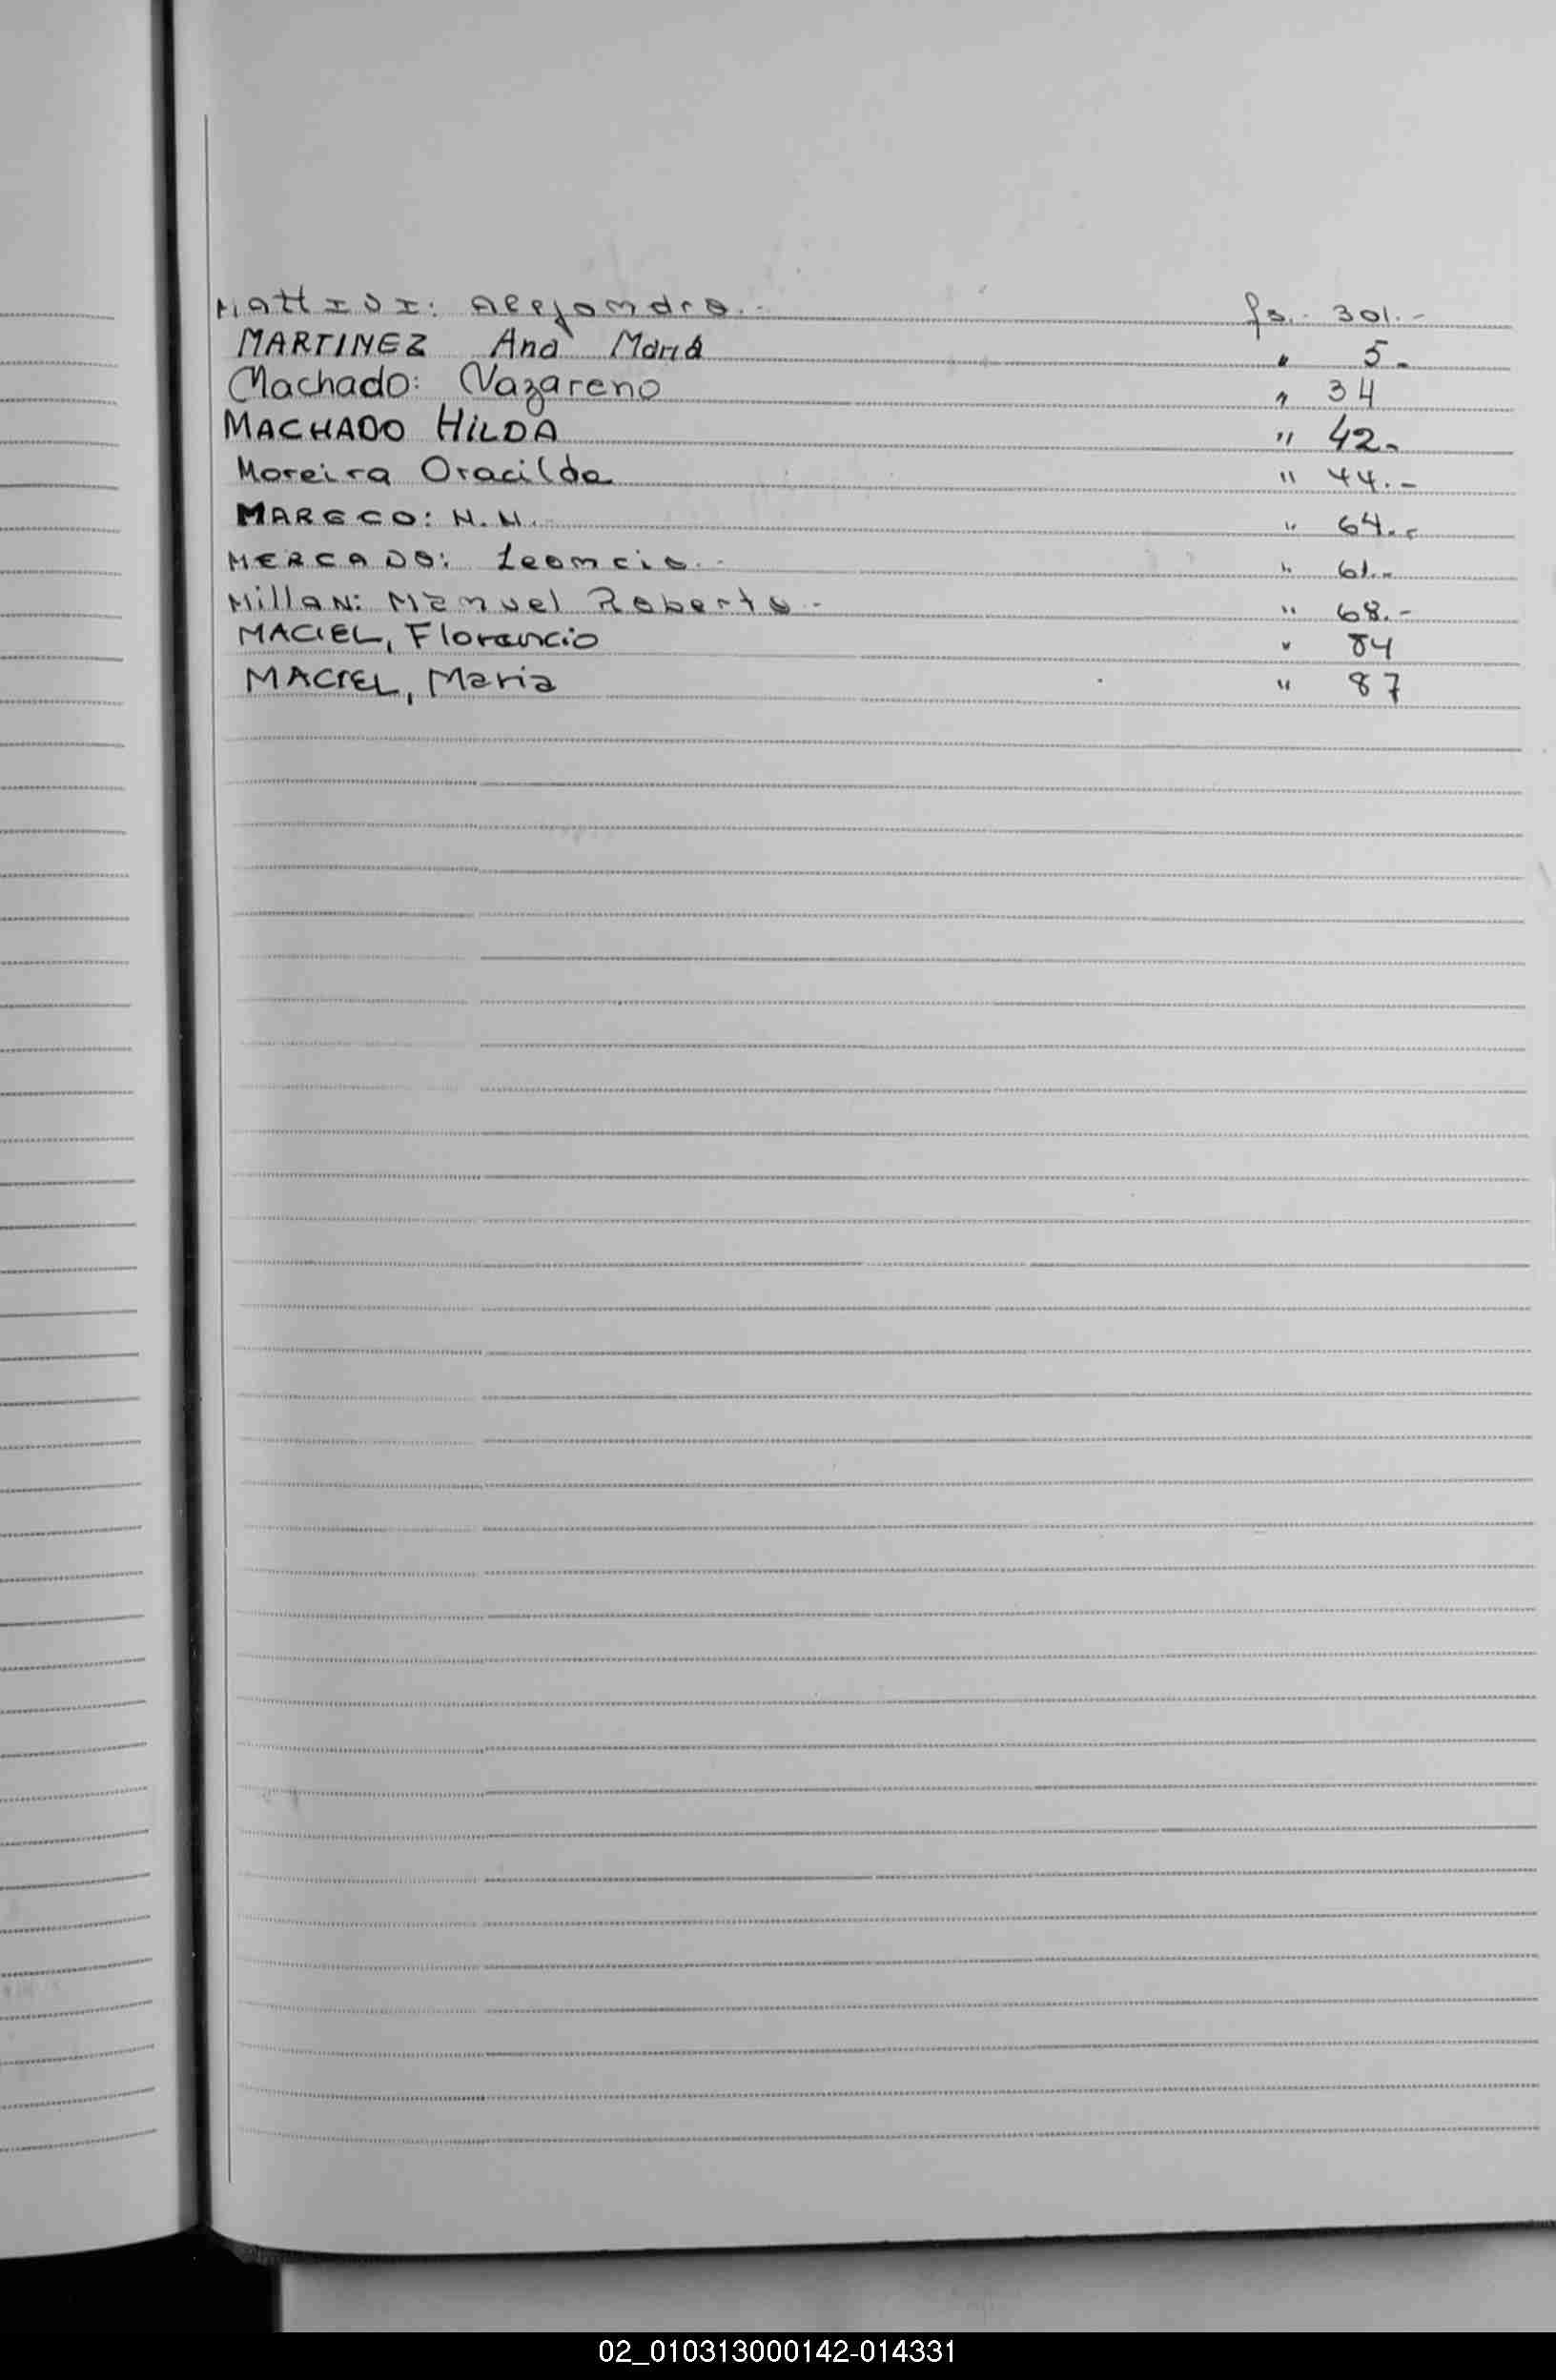 MattISI: Alejandro.- fs.- 301.-
MARTINEZ Ana Maria " 5.-
Machado: Nazareno " 34
MACHADO HILDA " 42.-
Moreira Oracilda " 44.-
MARECO: N.N. " 64.-
MERCADO: Leoncio.- " 61.-
MillaN: Manuel Roberto.- " 68.-
MACIEL, Florencio " 84
MACIEL, Maria " 87
02_010313000142-014331